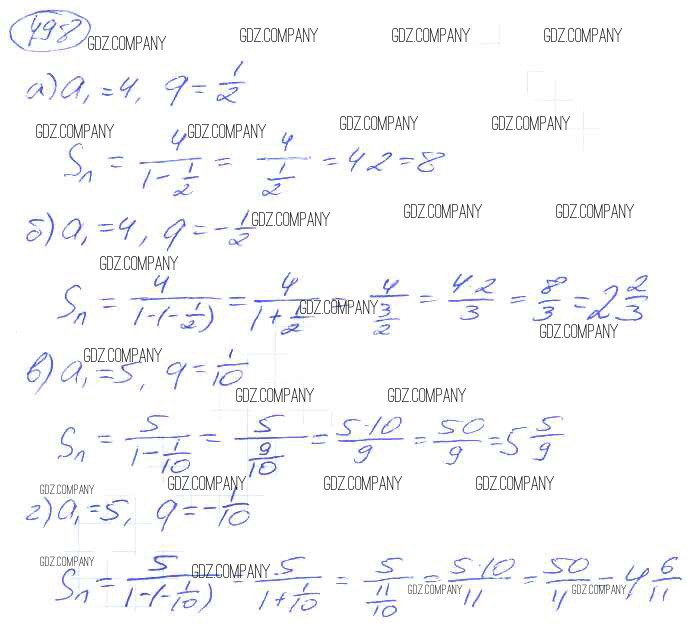 498 GDZ.COMPANY GDZ.COMPANY GDZ.COMPANY GDZ.COMPANY
а) a₁ = 4, q = 1/2
GDZ.COMPANY GDZ.COMPANY GDZ.COMPANY GDZ.COMPANY
Sₙ = 4/(1 - 1/2) = 4/(1/2) = 4·2 = 8
б) a₁ = 4, q = -1/2 GDZ.COMPANY GDZ.COMPANY GDZ.COMPANY
GDZ.COMPANY
Sₙ = 4/(1-(-1/2)) = 4/(1+1/2) = 4/(3/2) = 4·2/3 = 8/3 = 2 2/3
GDZ.COMPANY GDZ.COMPANY
GDZ.COMPANY
в) a₁ = 5, q = 1/10
GDZ.COMPANY GDZ.COMPANY
Sₙ = 5/(1 - 1/10) = 5/(9/10) = 5·10/9 = 50/9 = 5 5/9
GDZ.COMPANY GDZ.COMPANY GDZ.COMPANY GDZ.COMPANY
г) a₁ = 5, q = -1/10
GDZ.COMPANY GDZ.COMPANY GDZ.COMPANY GDZ.COMPANY
Sₙ = 5/(1-(-1/10)) = 5/(1+1/10) = 5/(11/10) = 5·10/11 = 50/11 = 4 6/11